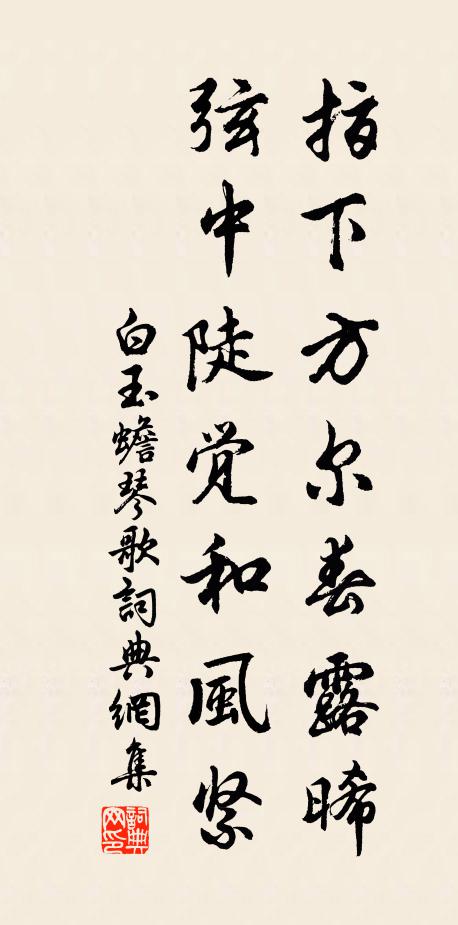 指下方尔春露晞
弦中陡觉和風紧
白玉蟾琴歌詞典網集
詞典网印